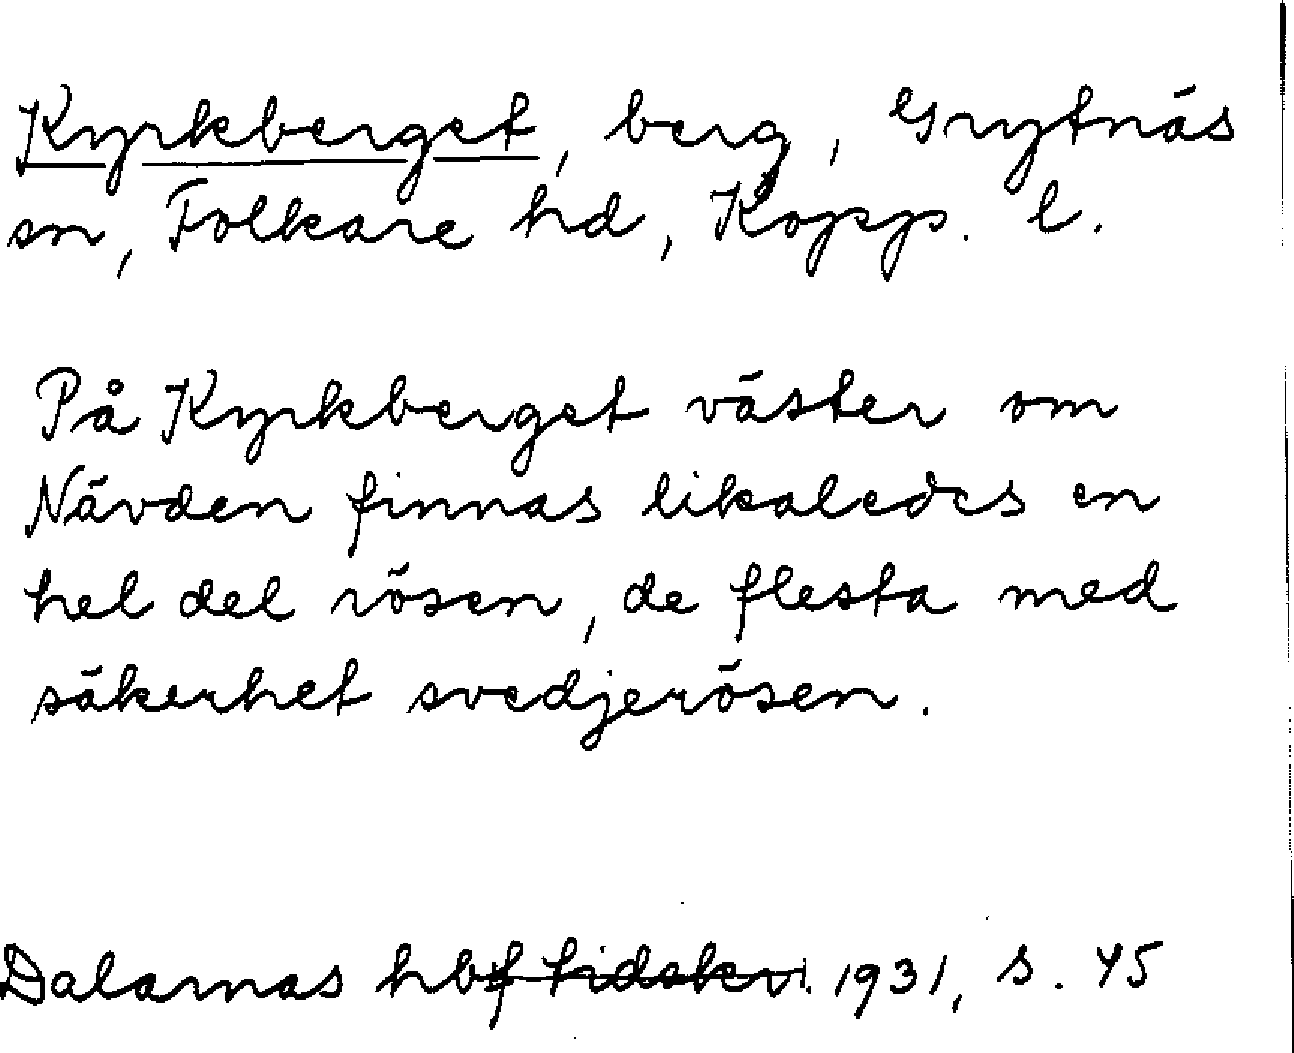 Kyrkberget, berg, Grytnäs
sn, Folkare hd, Kopp. l.
På Kyrkberget väster om
Nävden finnas likaledes en
hel del rösen, de flesta med
säkerhet svedjerösen.
Dalarnas hbf tidskr. 1931, s. 45